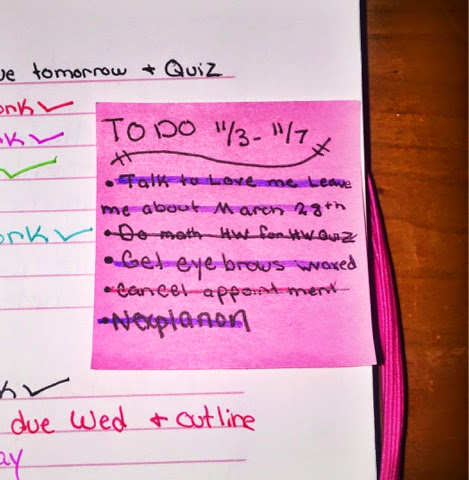 ue tomorrow + Quiz
ork ✓
rk ✓
✓
ork ✓
TO DO 11/3 - 11/7
• Talk to Love me Leave
me about March 28th
• Do math HW for HW Quiz
• Get eyebrows waxed
• Cancel appointment
• Nexplanon
k ✓
due Wed + outline
ay